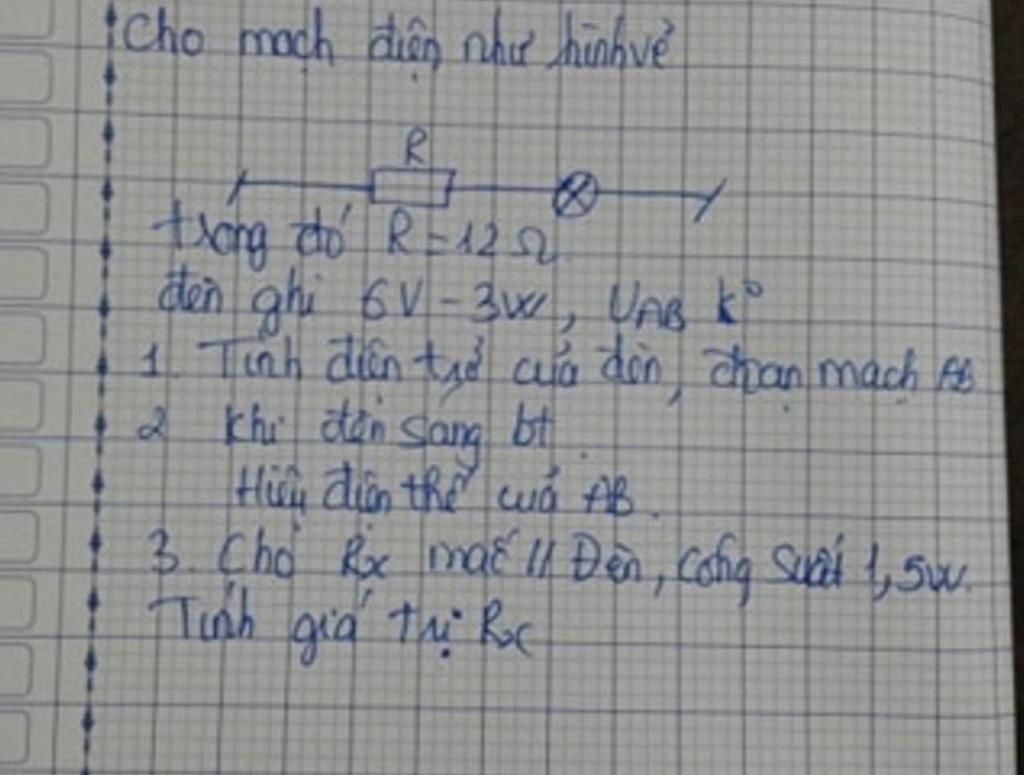 Cho mạch điện như hình vẽ
R
trong đó R = 12 Ω
đèn ghi 6V - 3W, UAB k°
1. Tính điện trở của đèn, đoạn mạch AB
2 Khi đèn sáng bt.
Hiệu điện thế của AB.
3. Cho Rx mắc // Đèn, công suất 1,5W.
Tính giá trị Rx